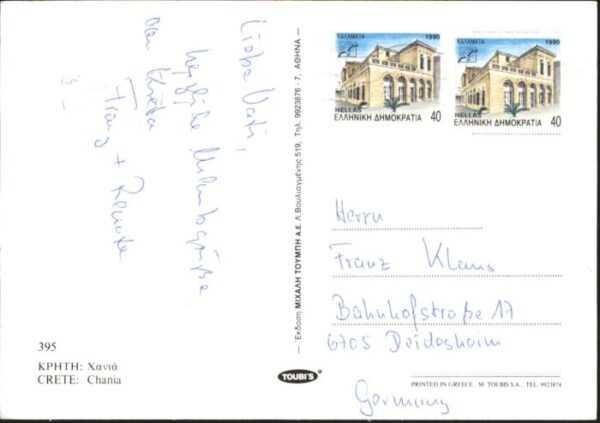 Lieber Vati,
herzliche Urlaubsgrüße
aus Kreta
Franz + Renate
395
ΚΡΗΤΗ: Χανιά
CRETE: Chania
— Έκδοση ΜΙΧΑΛΗ ΤΟΥΜΠΗ Α.Ε. Λ. Βουλιαγμένης 519, Τηλ. 9923876 - 7, ΑΘΗΝΑ —
TOUBI'S
ΚΑΛΑΜΑΤΑ 1990
HELLAS
ΕΛΛΗΝΙΚΗ ΔΗΜΟΚΡΑΤΙΑ 40
ΚΑΛΑΜΑΤΑ 1990
HELLAS
ΕΛΛΗΝΙΚΗ ΔΗΜΟΚΡΑΤΙΑ 40
Herrn
Franz Klaus
Bahnhofstraße 17
6705 Deidesheim
Germany
PRINTED IN GREECE M. TOUBIS S.A., TEL. 9923876